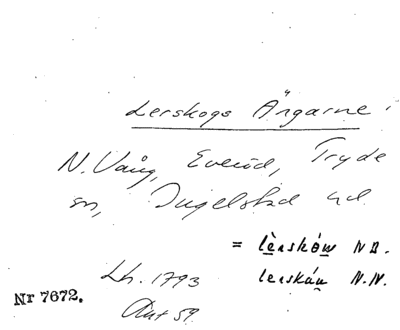 Lerskogs Ängarne i
N. Vång, Everöd, Tryde
sn, Ingelstad hd
= lèrskóu̲ N B.
lerskáu̲ N.N.
Lh. 1793
Akt 59
Nr 7672.